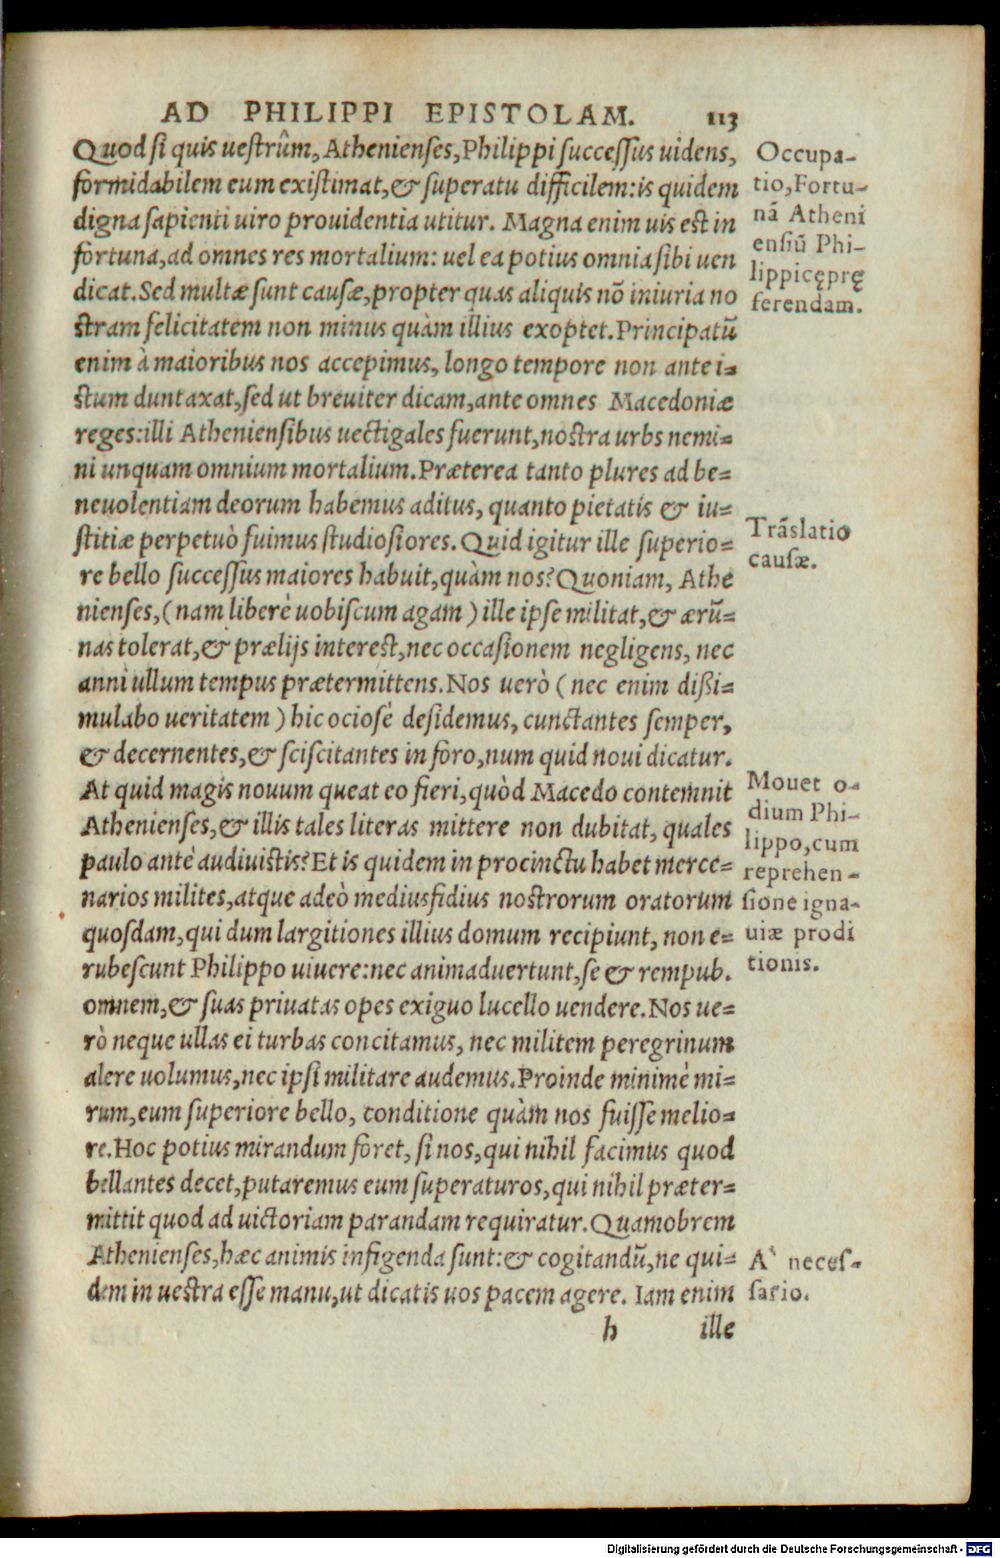 AD PHILIPPI EPISTOLAM. 113
Quod si quis uestrûm, Athenienses, Philippi successus uidens,
formidabilem eum existimat, & superatu difficilem: is quidem
digna sapienti uiro prouidentia utitur. Magna enim uis est in
fortuna, ad omnes res mortalium: uel ea potius omnia sibi uen
dicat. Sed multæ sunt causæ, propter quas aliquis nō iniuria no
stram felicitatem non minus quàm illius exoptet. Principatū
enim à maioribus nos accepimus, longo tempore non ante i=
stum duntaxat, sed ut breuiter dicam, ante omnes Macedoniæ
reges: illi Atheniensibus uectigales fuerunt, nostra urbs nemi=
ni unquam omnium mortalium. Præterea tanto plures ad be=
neuolentiam deorum habemus aditus, quanto pietatis & iu=
stitiæ perpetuò fuimus studiosiores. Quid igitur ille superio=
re bello successus maiores habuit, quàm nos? Quoniam, Athe
nienses, (nam liberè uobiscum agam) ille ipse militat, & ærū=
nas tolerat, & prælijs interest, nec occasionem negligens, nec
anni ullum tempus prætermittens. Nos uerò (nec enim dißi=
mulabo ueritatem) hic ociosè desidemus, cunctantes semper,
& decernentes, & sciscitantes in foro, num quid noui dicatur.
At quid magis nouum queat eo fieri, quòd Macedo contemnit
Athenienses, & illis tales literas mittere non dubitat, quales
paulo antè audiuistis? Et is quidem in procinctu habet merce=
narios milites, atque adeò mediusfidius nostrorum oratorum
quosdam, qui dum largitiones illius domum recipiunt, non e=
rubescunt Philippo uiuere: nec animaduertunt, se & rempub.
omnem, & suas priuatas opes exiguo lucello uendere. Nos ue=
rò neque ullas ei turbas concitamus, nec militem peregrinum
alere uolumus, nec ipsi militare audemus. Proinde minimè mi=
rum, eum superiore bello, conditione quàm nos fuisse melio=
re. Hoc potius mirandum foret, si nos, qui nihil facimus quod
bellantes decet, putaremus eum superaturos, qui nihil præter=
mittit quod ad uictoriam parandam requiratur. Quamobrem
Athenienses, hæc animis infigenda sunt: & cogitandū, ne qui=
dem in uestra esse manu, ut dicatis uos pacem agere. Iam enim
h ille
Occupa-
tio, Fortu-
nā Atheni
ensiū Phi-
lippicę prę
ferendam.
Trāslatio
causæ.
Mouet o-
dium Phi-
lippo, cum
reprehen-
sione igna-
uiæ prodi
tionis.
A` neces-
sario.
Digitalisierung gefördert durch die Deutsche Forschungsgemeinschaft - DFG